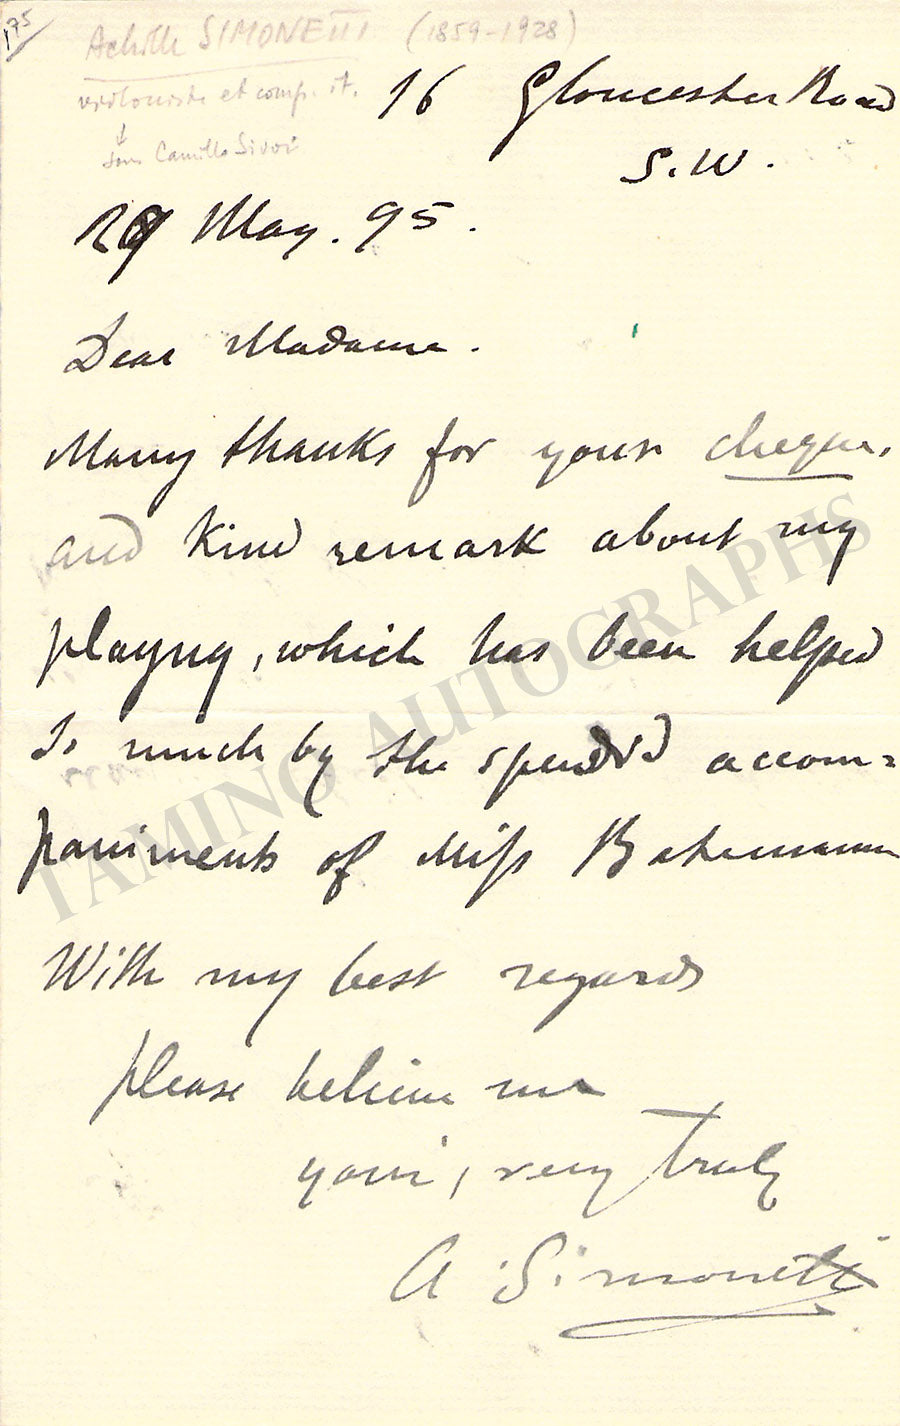 175
Achille SIMONETTI (1859-1928)
violoniste et comp. it.
Camillo Sivori
16 Gloucester Road
S.W.
29 May. 95.
Dear Madame.
Many thanks for your cheque,
and Kind remark about my
playng, which has been helped
so much by the splendid accom=
paniments of Miss
With my best regards
please believe me
yours, very truly
A. Simonetti
TAMINO AUTOGRAPHS